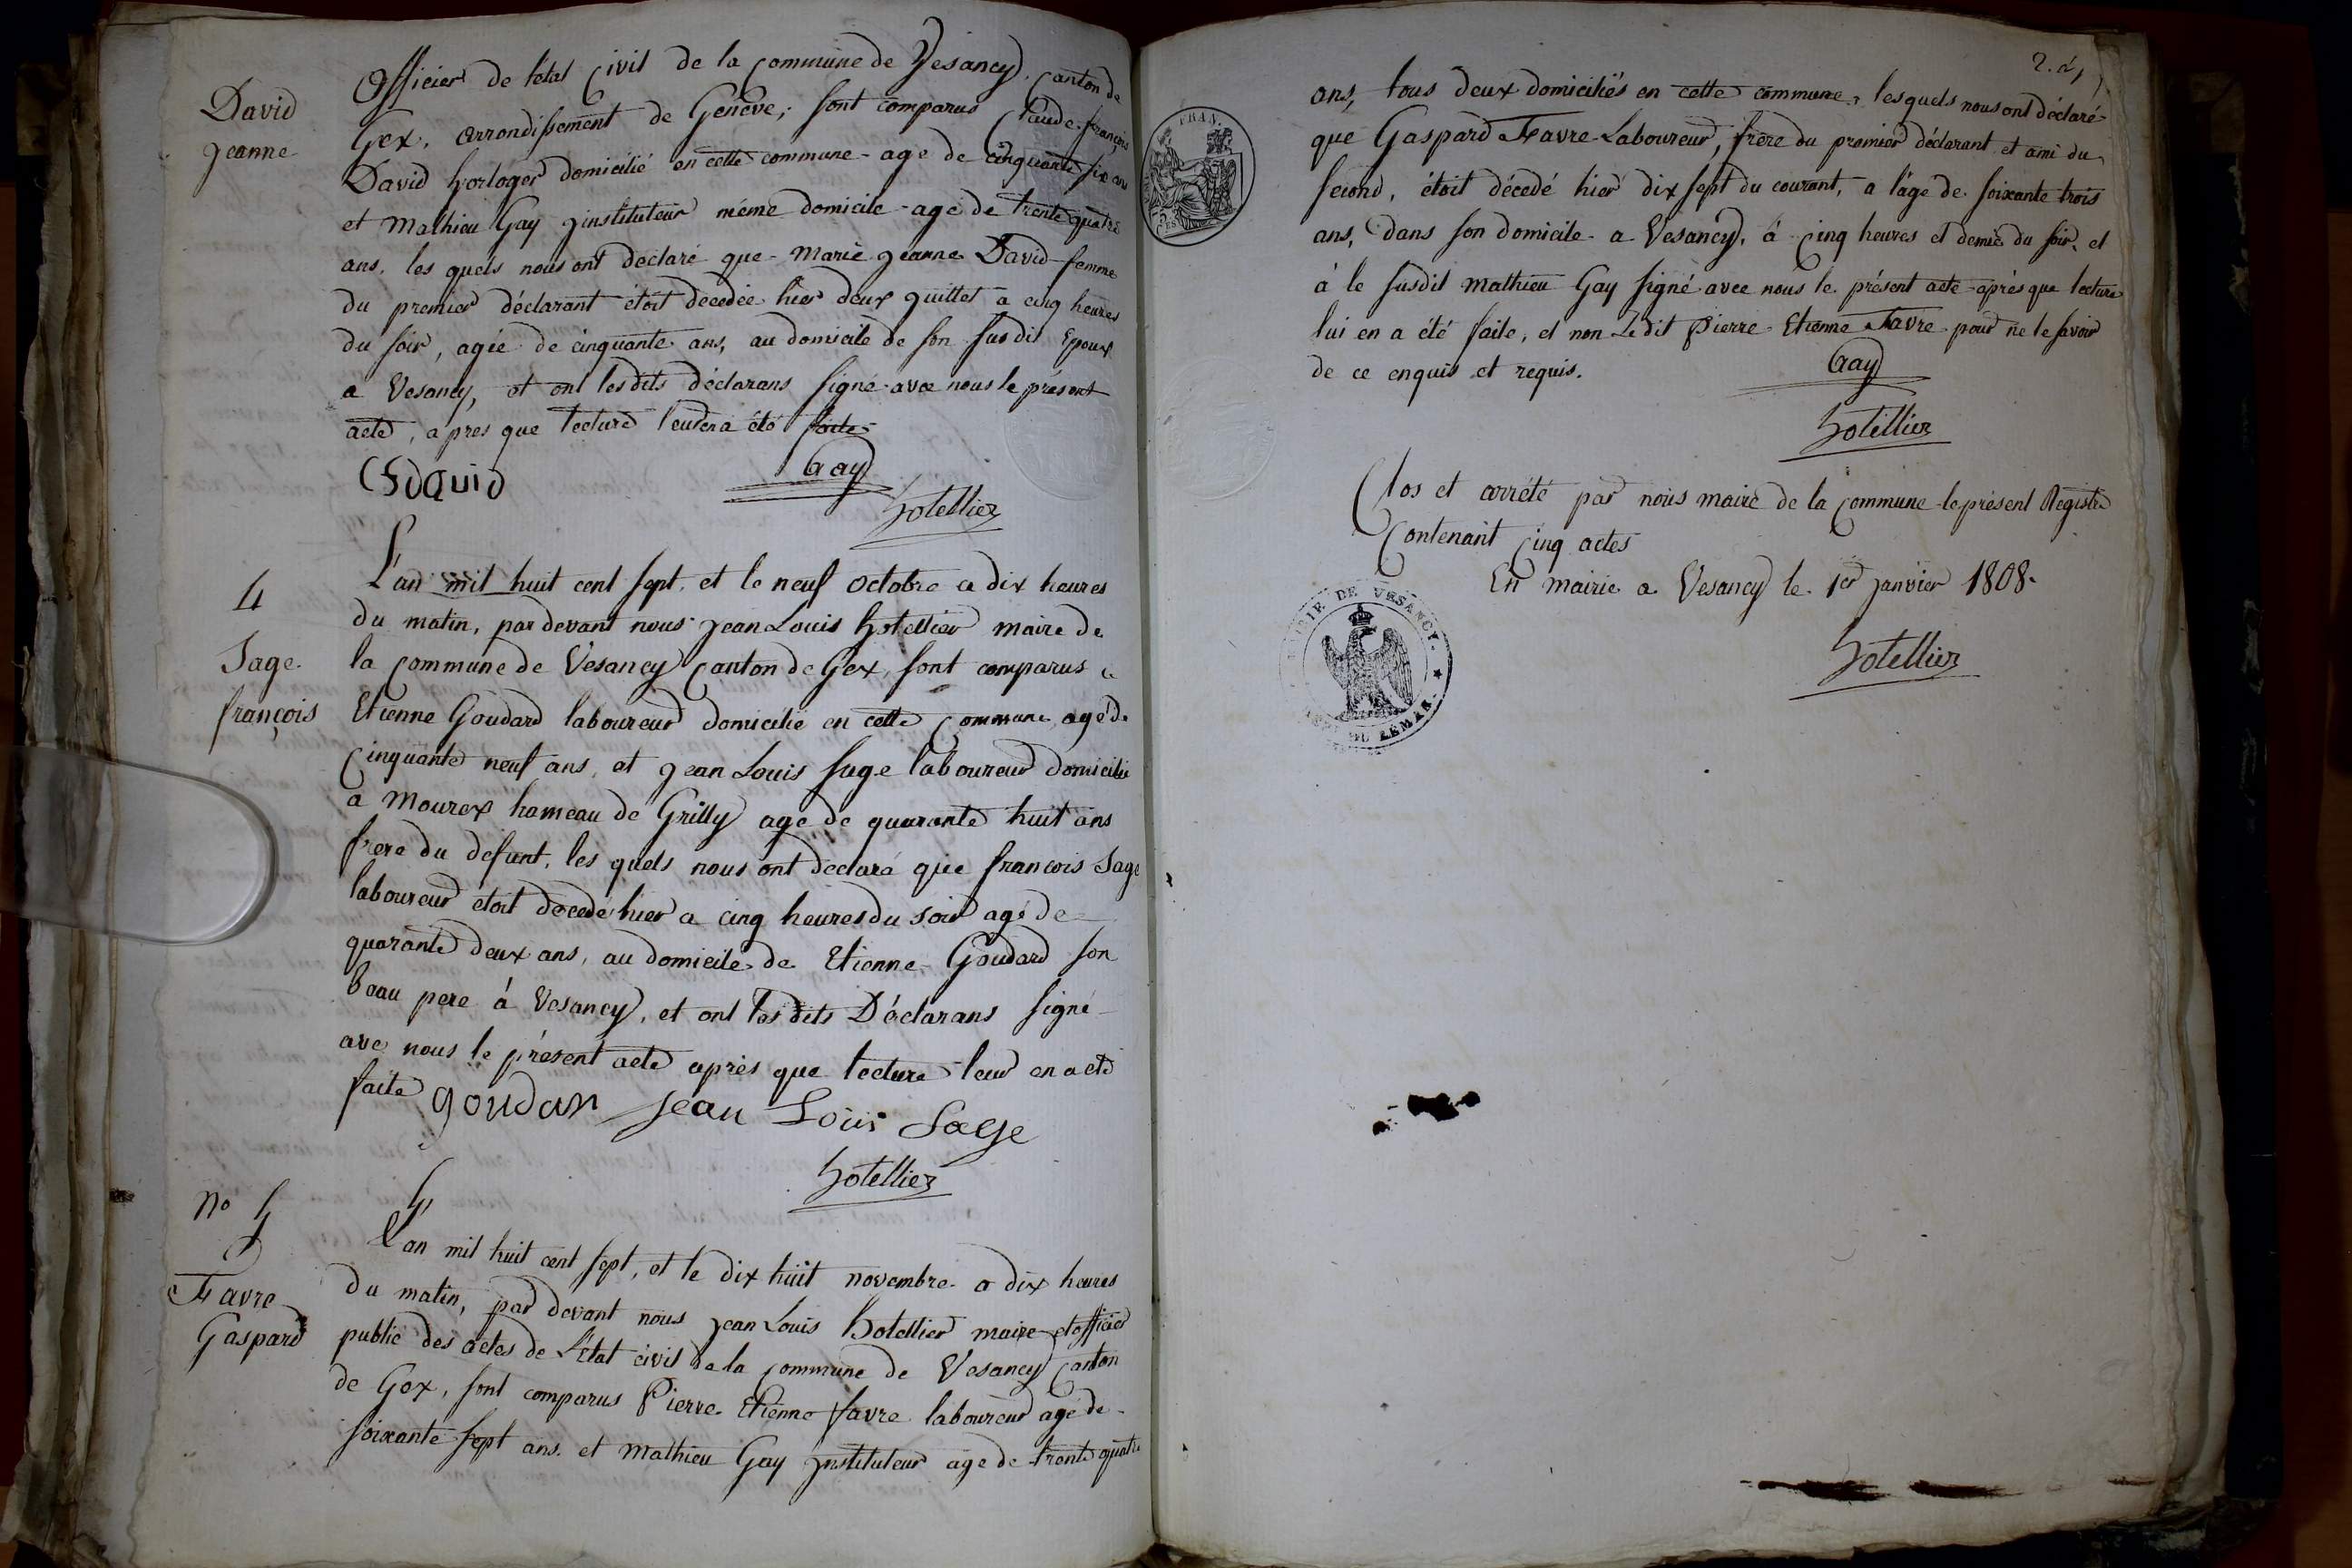 David
Jeanne
Officier de letat Civil de la Commune de Vesancy, Canton de
Gex, arrondissement de Genève; sont comparus Claude françois
David horloger domicilié en cette commune age de cinquante six ans
et Mathieu Gay jnstituteur même domicile age de trente quatre
ans, les quels nous ont declaré que Marie Jeanne David femme
du premier déclarant étoit decedée hier deux juillet a cinq heures
du soir, agée de cinquante ans, au domicile de son susdit Epoux
a Vesancy, et ont lesdits déclarans signé avec nous le présent
acte, apres que lecture leur en a été faite
CF david
Gay
hotellier
4
Sage
françois
L'an mil huit cent sept, et le neuf octobre a dix heures
du matin, par devant nous jean Louis hotellier maire de
la Commune de Vesancy Canton de Gex, sont comparus
Etienne Goudard laboureur domicilié en cette Commune agé de
Cinquante neuf ans, et jean Louis Sage laboureur domicilié
a Mourex hameau de Grilly age de quarante huit ans
frere du defunt, les quels nous ont declaré que francois Sage
laboureur etoit decedé hier a cinq heures du soir agé de
quarante deux ans, au domicile de Etienne Goudard son
beau pere à Vesancy, et ont lesdits Déclarans signé
avec nous le présent acte après que lecture leur en a eté
faite
goudar jean Louis Sage
hotellier
No 5
Favre
Gaspard
L'an mil huit cent sept, et le dix huit novembre a dix heures
du matin, par devant nous jean Louis hotellier maire et officier
public des actes de L'Etat civil de la Commune de Vesancy Canton
de Gex, sont comparus Pierre Etienne favre laboureur agé de
soixante sept ans. et Mathieu Gay jnstituteur age de trente quatre
2. d
ans, tous deux domiciliés en cette commune, lesquels nous ont déclaré
que Gaspard Favre Laboureur, frère du premier déclarant et ami du
second, étoit décedé hier dix sept du courant, a l'âge de soixante trois
ans, dans son domicile a Vesancy, à Cinq heures et demie du soir, et
à le susdit Mathieu Gay signé avec nous le présent acte après que lecture
lui en a été faite, et non Ledit Pierre Etienne Favre pour ne le savoir
de ce enquis et requis.
Gay
hotellier
Clos et arrété par nous maire de la Commune le présent Registre
Contenant Cinq actes
En mairie a Vesancy le 1er janvier 1808.
hotellier
MAIRIE DE VESANCY.
DU LEMAN.